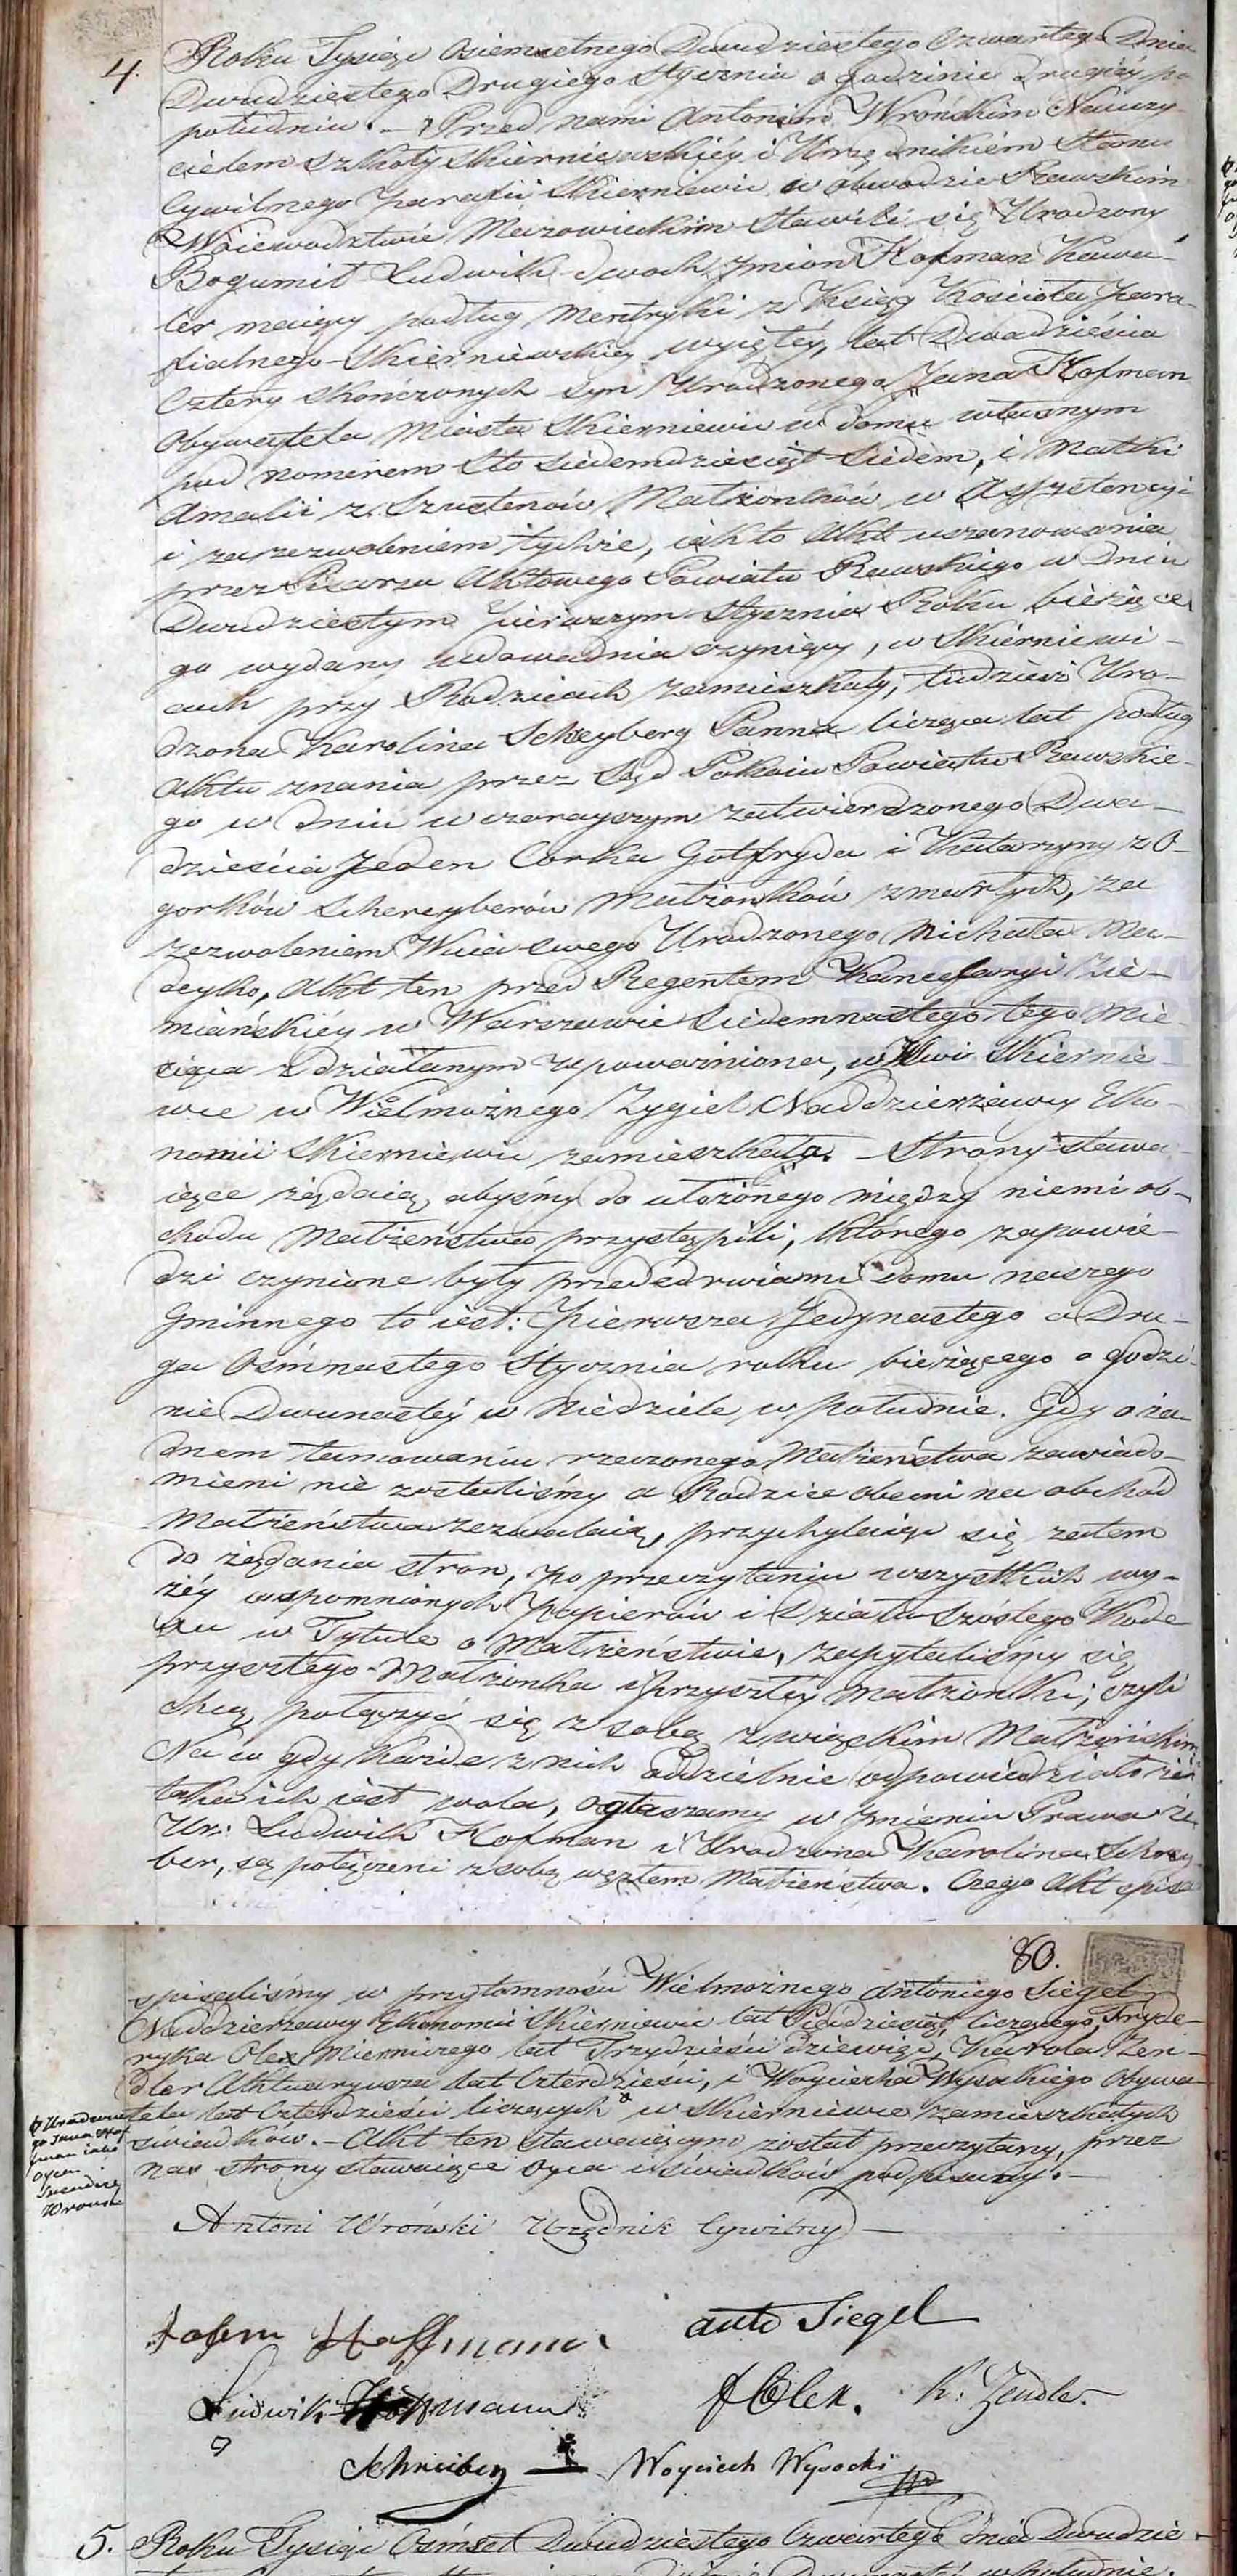 4.
Roku Tysiąc Osiemsetnego Dwudziestego Czwartego Dnia
Dwudziestego Drugiego Stycznia o godzinie drugiéy po
południu. — Przed nami Antonim Wrońskim Nauczy
cielem szkoły Skierniewskiéy i Urzędnikiém Stanu
Cywilnego Parafii Skierniewic w obwodzie Rawskim
Woiewodztwie Mazowieckim stawili się Urodzony
Bogumił Ludwik dwoch Imion Hofman Kawa-
ler maiący podług Mentryki z Księg Kościoła Para-
fialnego Skierniewskiey wyiętéy, lat Dwadzieścia
Cztery skończonych syn Urodzonego Jana Hofman
Obywatela Miasta Skierniewic w domu własnym
pod nomerem Sto siedemdziesiąt Siedem, i Matki
Amalii z Szustenów Małżonków w Assystencyi
i za zezwoleniem tychże, iak to Akt uszanowania
przez Pisarza Aktowego Powiatu Rawskiego w Dniu
Dwudziestym Pierwszym Stycznia Roku bieżące
go wydany udowadnia czyniący, w Skierniewi-
cach przy Rodzicach zamieszkały, tudzież Uro-
dzona Karolina Schreyberg Panna licząca lat podług
Aktu znania przez Sąd Pokoiu Powiatu Rawskie-
go w dniu wczorayszym zatwierdzonego Dwa-
dzieścia Jeden Corka Gotfryda i Katarzyny z O-
gorków Schereyberów Małżonków zmarłych, za
zezwoleniem Wuia swego Urodzonego Michała Ma-
deyko, Akt ten przed Regentem Kancellaryi Zie-
miańskiéy w Warszawie Siedemnastego tego Mie-
siąca zdziałanym upoważniona, w Wsi Skiernie-
wce u Wielmożnego Zygiel Naddzierżawcy Eko-
nomii Skierniewic zamieszkała. — Strony stawa-
iące żądaią abyśmy do ułożonego między niemi ob-
chodu Małżeństwa przystąpili, którego zapowie-
dzi czynione były przed drzwiami Domu naszego
Gminnego to iest: Pierwsza Jedynastego a Dru-
ga Osmnastego Stycznia roku bieżącego o godzi-
nie Dwunastéy w Niedziele w południe. Gdy o ża-
dnem tamowaniu rzeczonego Małżeństwa zawiado-
mieni nie zostaliśmy a Rodzice obecni na obchod
Małżeństwa zezwalaią, przychylaiąc się zatem
do żądania stron, po przeczytaniu wszystkich wy-
żéy wspomnionych papierów i Działu szóstego Kode
xu w Tytule o Małżeństwie, zapytaliśmy się
przyszłego Małżonka i przyszłéy Małżonki; czyli
chcą połączyć się z sobą związkiem Małżeńskim
Na co gdy każde z nich oddzielnie odpowiedziało że
taka ich iest wola, ogłaszamy w Imieniu Prawa że
Ur: Ludwik Hofman i Urodzona Karolina Schrey-
ber, są połączeni z sobą węzłem Małżeństwa. Czego Akt spisa
80.
spisaliśmy w przytomności Wielmożnego Antoniego Siegel
Naddzierżawcy Ekonomii Skierniewic lat Piędziesiąt liczącego, Fryde-
ryka Olex Mierniczego lat Trzydzieści dziewięć, Karola Zen-
dler Aktuaryusza lat Czterdzieści, i Woyciecha Wysockiego Obywa-
tela lat Czterdzieści liczących w Skierniewce zamieszkałych
świadkow. — Akt ten stawaiącym został przeczytany, przez
nas strony stawaiące oyca i świadków podpisany. —
Urodzone
go Jana Hof
man iako
oyca
Wroński
Antoni Wroński Urzędnik Cywilny —
Johan Hoffmann
anto Siegel
Ludwik Hoffmann
f Olex. K: Zendler
Schreiber
Woyciech Wysocki
5. Roku Tysiąc Ośmset Dwudziestego Czwartego Dnia Dwudzie